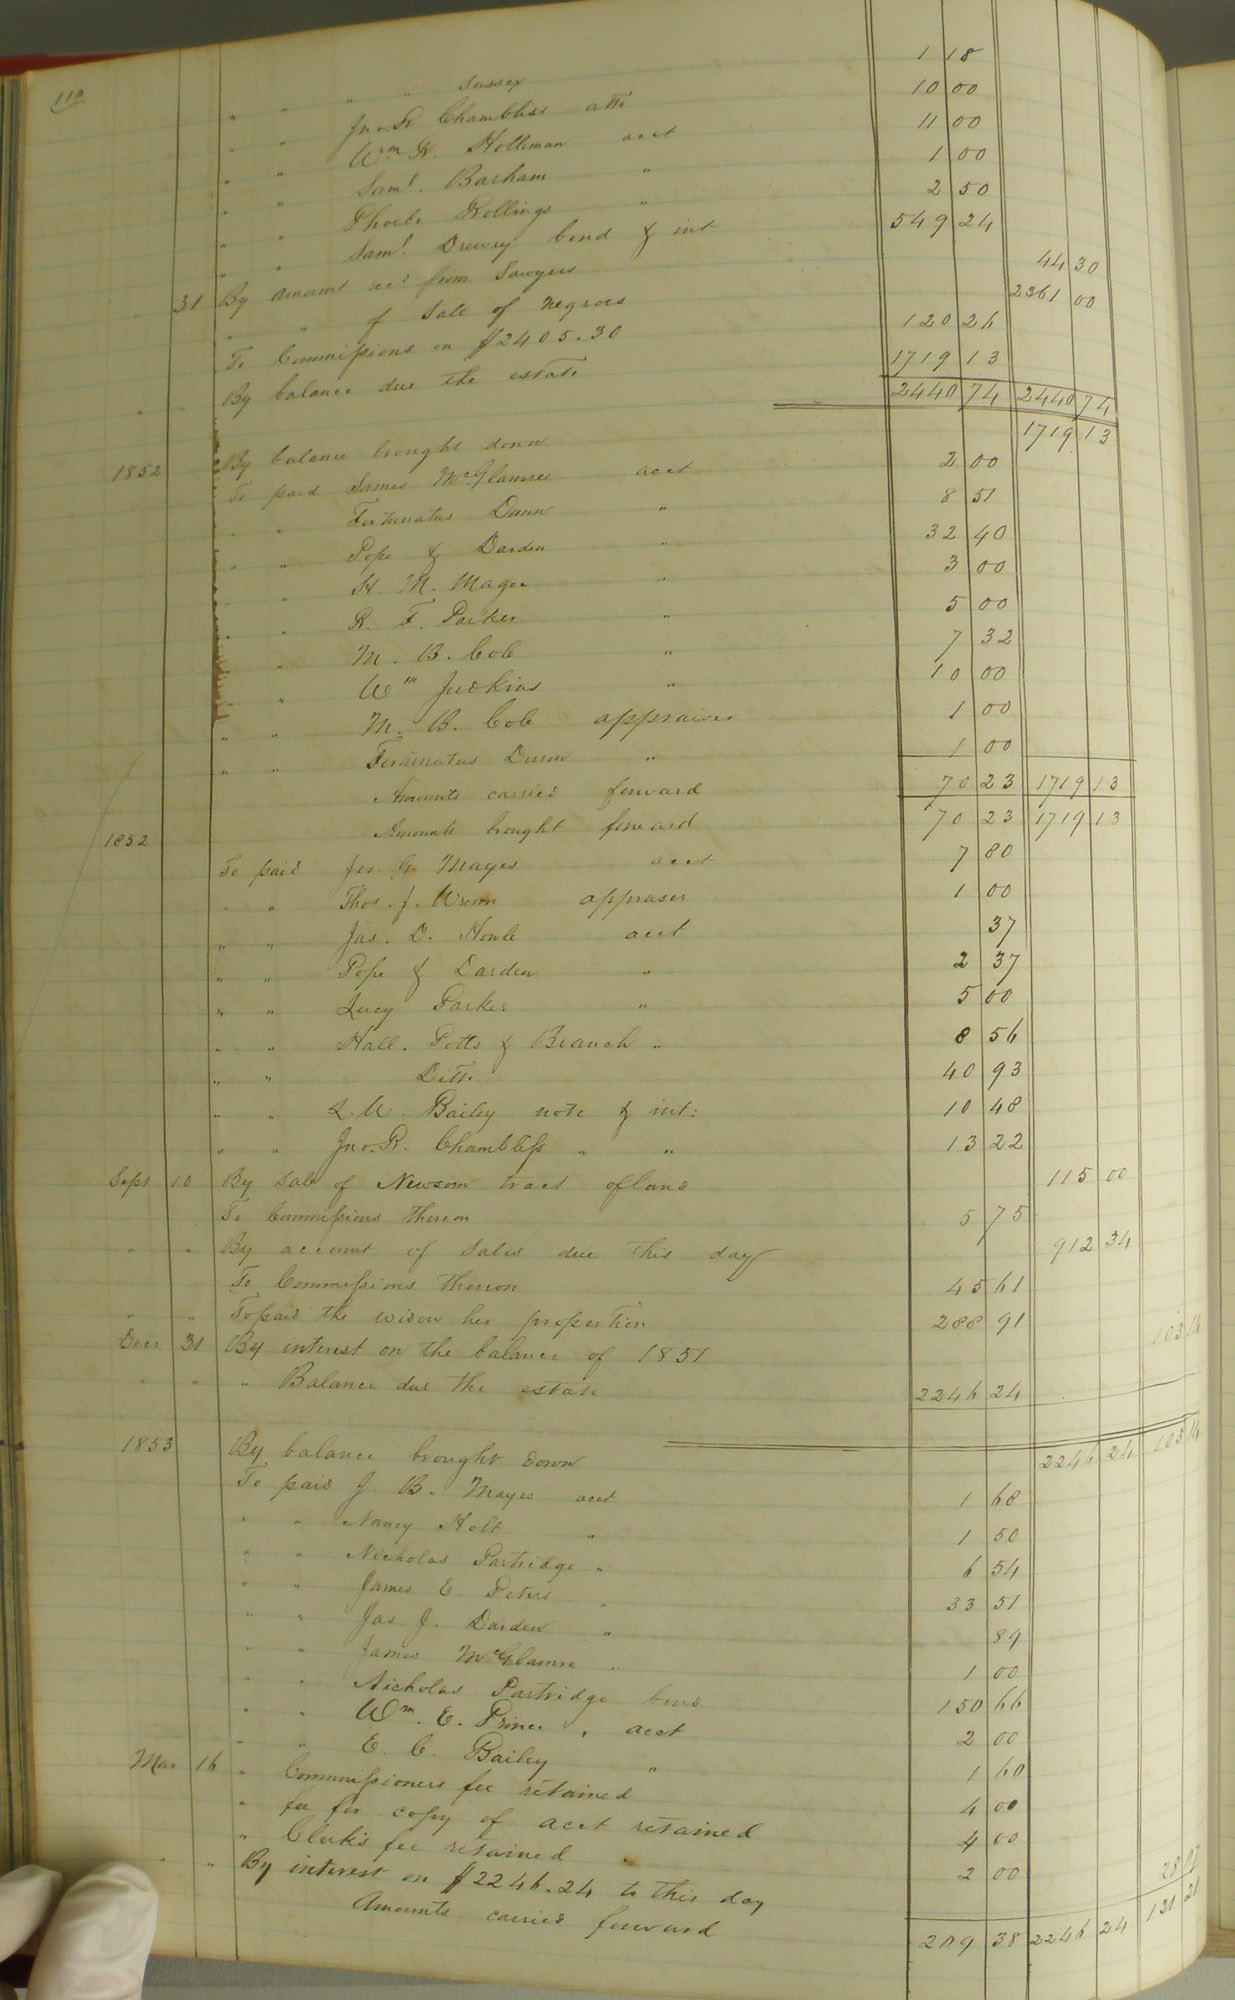 110
" " " Sussex 1 18
" " Jno. R Chambliss atto 10 00
" " Wm H. Holleman acct 11 00
" " Saml. Barham " 1 00
" " Phoebe Rollings " 2 50
" " Saml. Drewry bond & int 549 24
31 By amount recd from Sawyers 44 30
" " of Sale of Negroes 2361 00
To Commissions on $2405.30 120 26
" " By balance due the estate 1719 13
2440 74 2440 74
1852 By balance brought down 1719 13
To paid James McGlamree acct 2 00
" " Fortunatus Dunn " 8 51
" " Pope & Darden " 32 40
" " H. M. Magee " 3 00
" " R. F. Parker " 5 00
" " M. B. Cole " 7 32
" " Wm Judkins " 10 00
" " M. B. Cole appraiser 1 00
" " Fortunatus Dunn " 1 00
Amounts carried forward 70 23 1719 13
1852 Amounts brought forward 70 23 1719 13
To paid Jos. G. Mayes acct 7 80
" " Thos. J. Wrenn appraser 1 00
" " Jas. D. Howle acct 37
" " Pope & Darden " 2 37
" " Lucy Parker " 5 00
" " Hall. Potts & Branch " 8 56
" " Ditto 40 93
" " L. W. Bailey note & int: 10 48
" " Jno. R. Chambliss " " 13 22
Sept 10 By Sale of Newsom tract of land 115 00
To Commissions thereon 5 75
" " By account of Sales due this day 912 34
To Commissions thereon 45 61
" " To paid the widow her proportion 288 91
Decr 31 By interest on the balance of 1851 103 14
" " " Balance due the estate 2246 24
1853 By balance brought down 2246 24 103 14
To paid J. B. Mayes acct 1 68
" " Nancy Holt " 1 50
" " Nicholas Partridge " 6 54
" " James E. Peters " 33 51
" " Jas. J. Darden " 89
" " James McGlamre " 1 00
" " Nicholas Partridge bond 150 66
" " Wm. E. Prince " acct 2 00
" " E. C. Bailey " 1 60
Mar 16 " Commissioners fee retained 4 00
" fee for copy of acct retained 4 00
" Clerk's fee retained 2 00
" " By interest on $2246.24 to this day 28 07
Amounts carried forward 209 38 2246 24 131 21